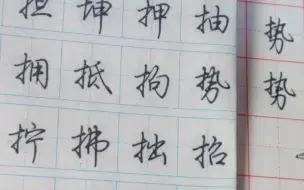 担 坤 押 抽
拥 抵 拘 势
拧 拂 拙 招
势
势